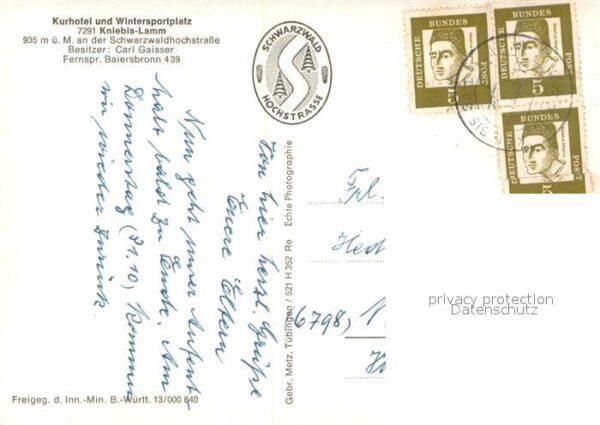 Kurhotel und Wintersportplatz
7291 Kniebis-Lamm
935 m ü. M. an der Schwarzwaldhochstraße
Besitzer: Carl Gaisser
Fernspr. Baiersbronn 439
SCHWARZWALD
HOCHSTRASSE
DEUTSCHE
BUNDES
POST
5
DEUTSCHE
BUNDES
POST
5
DEUTSCHE
BUNDES
POST
5
Nun geht unser Aufent-
halt bald zu Ende. Am
Donnerstag (21.10) kommen
wir wieder zurück.
Von hier herzl. Grüße
Euere Eltern
Echte Photographie
Gebr. Metz, Tübingen / 521 H 352 Re
6798)
privacy protection
Datenschutz
Freigeg. d. Inn.-Min. B.-Württ. 13/000 640